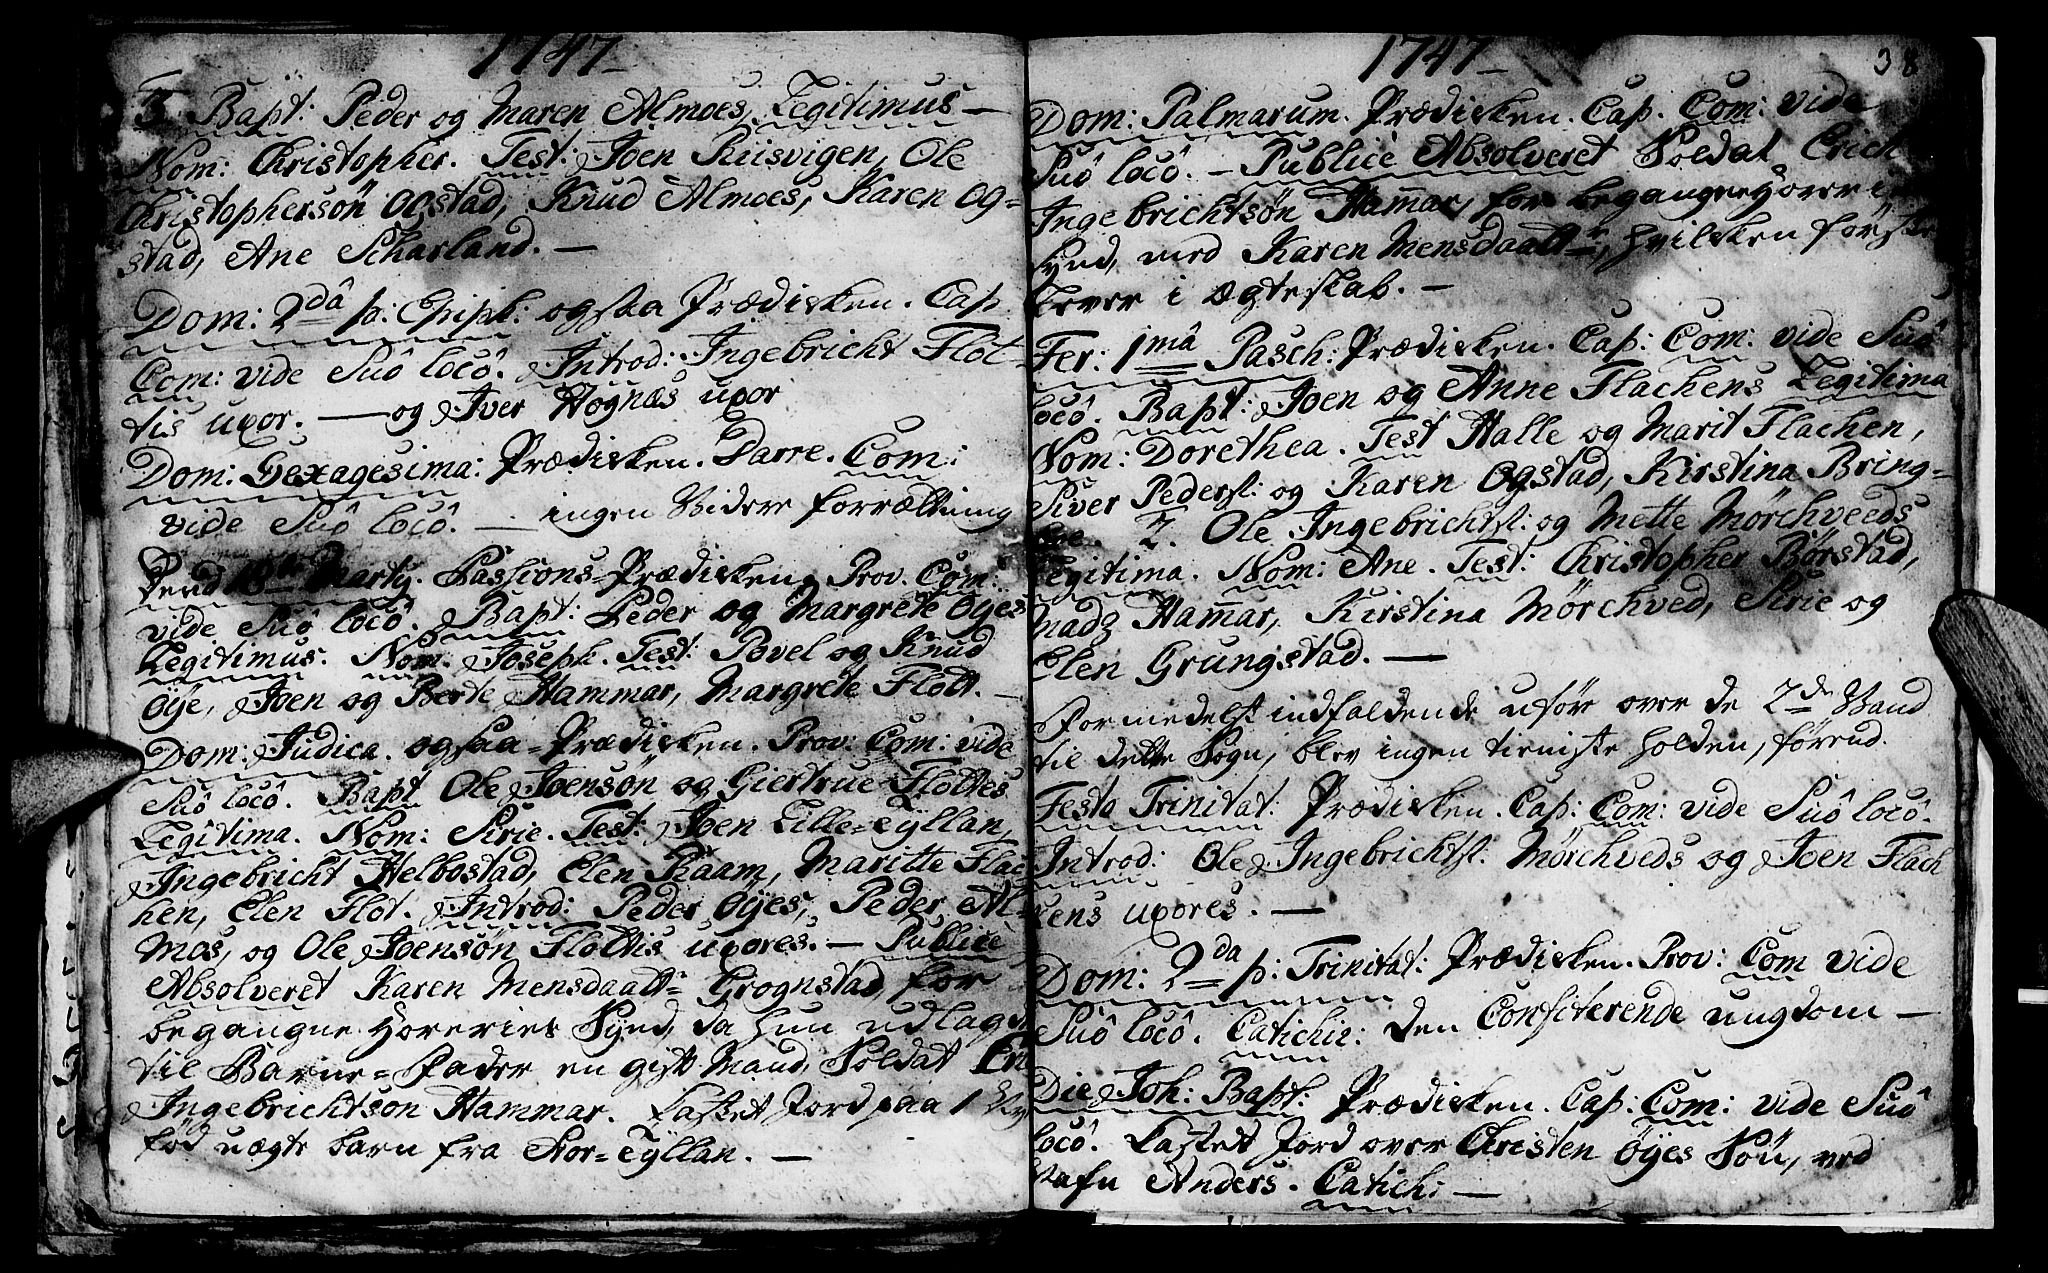 1747
3. Bapt: Peder og Maren Almoes, Legitimus –
Nom: Christopher. Test: Joen Riisvigen, Ole
Christophersön Ogstad, Knud Almoes, Karen Og-
stad, Ane Scharland. –
Dom: 2dâ p: Epiph: ogsaa Prædicken. Cap
Com: vide Suô locô. Introd: Ingebricht Flöt-
tis uxor. – og Iver Hognæs uxor
Dom: Sexagesima: Prædicken. Parre. Com:
vide Suô locô. – ingen Videre forrættning
Martij. Passions-Prædicken, Prov. Com:
vide Suô locô. Bapt: Peder og Margrete Öyes
Legitimus. Nom. Joseph. Test: Povel og Knud
Öye, Joen og Berte Hammar, Margrete Flött. –
Dom: Judica. ogsaa-Prædicken. Prov: Com: vide
Suô locô. Bapt Ole Joensön og Giertrue Flöttes
Legitima. Nom: Sirie. Test: Joen Lille-Tÿllan,
Ingebricht Helbostad, Elen Raam, Maritte Flac
hen, Elen Flöt. Introd: Peder Öÿes, Peder Al-
mos, og Ole Joensön Flöttis uxores. – Publice
Absolveret Karen Mensdaatt- Grognstad, for
begangne Horeries Synd, da hun udlagde
til Barne-Fader en gift Mand, Soldat
Ingebrichtsön Hammar. Castet Jord paa 1
föd uægte barn fra Stor-Tÿllan. –
1747
38
Dom: Palmarum. Prædicken. Cap. Com: vide
Suô locô. – Publice Absolveret Soldat Erich
Ingebrichtsön Ham̄ar, for begangne Horerie
Synd, med Karen Mensdaattr, hvilcken förste
lever i Ægteskab. –
Fer: 1mâ Pasch: Prædicken. Cap: Com: vide Suô
locô. Bapt: Joen og Anne Flachens Legitima
Nom: Dorethea. Test Halle og Marit Flachen,
Siver Peders: og Karen Ogstad, Kirstina Bring-
2. Ole Ingebrichts: og Mette Mörchveeds
Legitima. Nom: Ane. Test: Christopher Börstad,
Madz Ham̄ar, Kirstina Mörchved, Sirie og
Elen Grungstad. –
Formedelst indfaldende uföre over de 2de Vand
til dette Sogn, blev ingen tieniste holden, förend.
Festo Trinitat: Prædicken. Cap: Com: vide Suô locô.
Introd: Ole Ingebrichts: Mörchveds og Joen Flach
kens uxores. –
Dom: 2da p: Trinitat: Prædicken. Prov: Com vide
Suô locô. Catichis: den Confiterende ungdom –
Die Joh: Bapt: Prædicken. Cap: Com: vide Suô
locô. Castet Jord over Christen Öyes Sön, ved
Nafn Anders. Catich: –